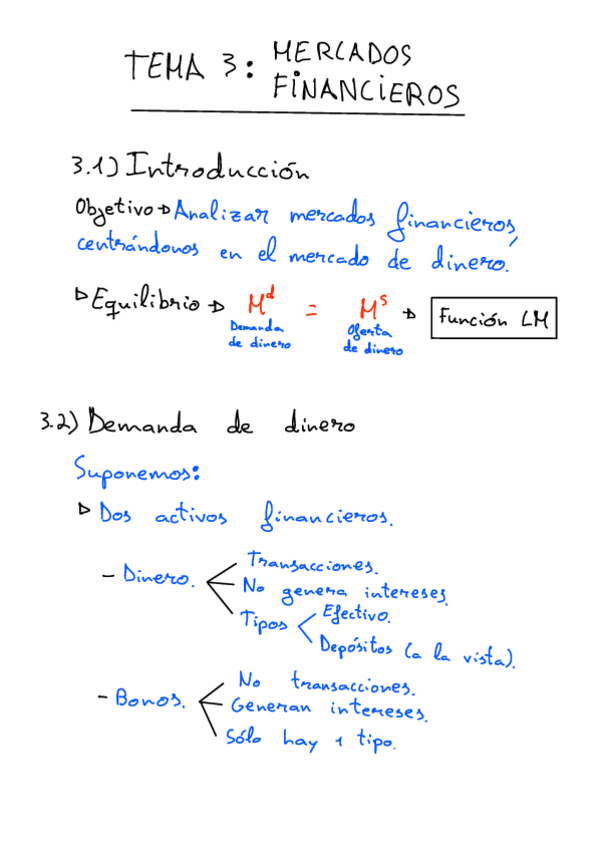 TEMA 3: MERCADOS
FINANCIEROS
3.1) Introducción
Objetivo → Analizar mercados financieros,
centrándonos en el mercado de dinero.
▷ Equilibrio → Mᵈ = Mˢ → Función LM
Demanda de dinero
Oferta de dinero
3.2) Demanda de dinero
Suponemos:
▷ Dos activos financieros.
- Dinero.
Transacciones.
No genera intereses.
Tipos
Efectivo.
Depósitos (a la vista).
- Bonos.
No transacciones.
Generan intereses.
Sólo hay 1 tipo.